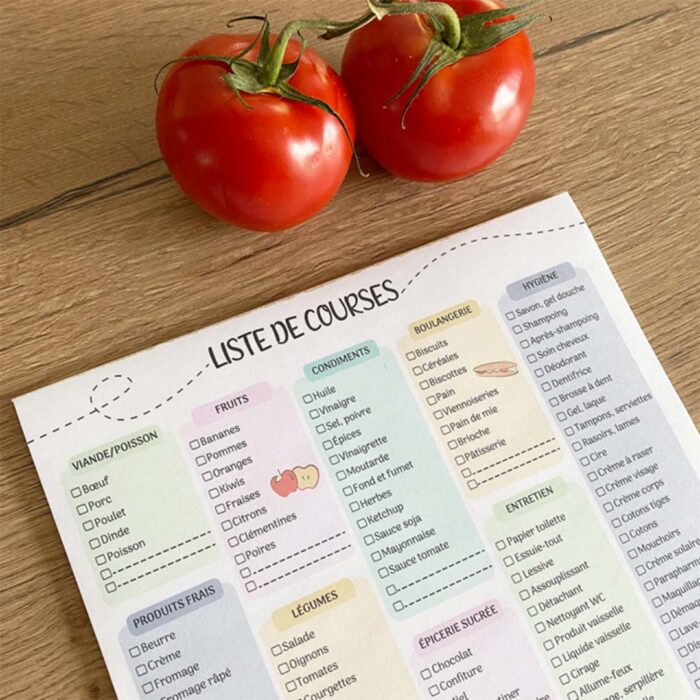 LISTE DE COURSES
VIANDE/POISSON
Bœuf
Porc
Poulet
Dinde
Poisson
FRUITS
Bananes
Pommes
Oranges
Kiwis
Fraises
Citrons
Clémentines
Poires
CONDIMENTS
Huile
Vinaigre
Sel, poivre
Épices
Vinaigrette
Moutarde
Fond et fumet
Herbes
Ketchup
Sauce soja
Mayonnaise
Sauce tomate
BOULANGERIE
Biscuits
Céréales
Biscottes
Pain
Viennoiseries
Pain de mie
Brioche
Pâtisserie
HYGIÈNE
Savon, gel douche
Shampoing
Après-shampoing
Soin cheveux
Déodorant
Dentifrice
Brosse à dent
Gel, laque
Tampons, serviettes
Rasoirs, lames
Cire
Crème à raser
Crème visage
Crème corps
Cotons tiges
Cotons
Mouchoirs
Crème solaire
Parapharm
Maquill
Démo
Lave-
Dis
PRODUITS FRAIS
Beurre
Crème
Fromage
Fromage râpé
LÉGUMES
Salade
Oignons
Tomates
Courgettes
ÉPICERIE SUCRÉE
Chocolat
Confiture
ENTRETIEN
Papier toilette
Essuie-tout
Lessive
Assouplissant
Détachant
Nettoyant WC
Produit vaisselle
Liquide vaisselle
Cirage
Allume-feux
serpillère